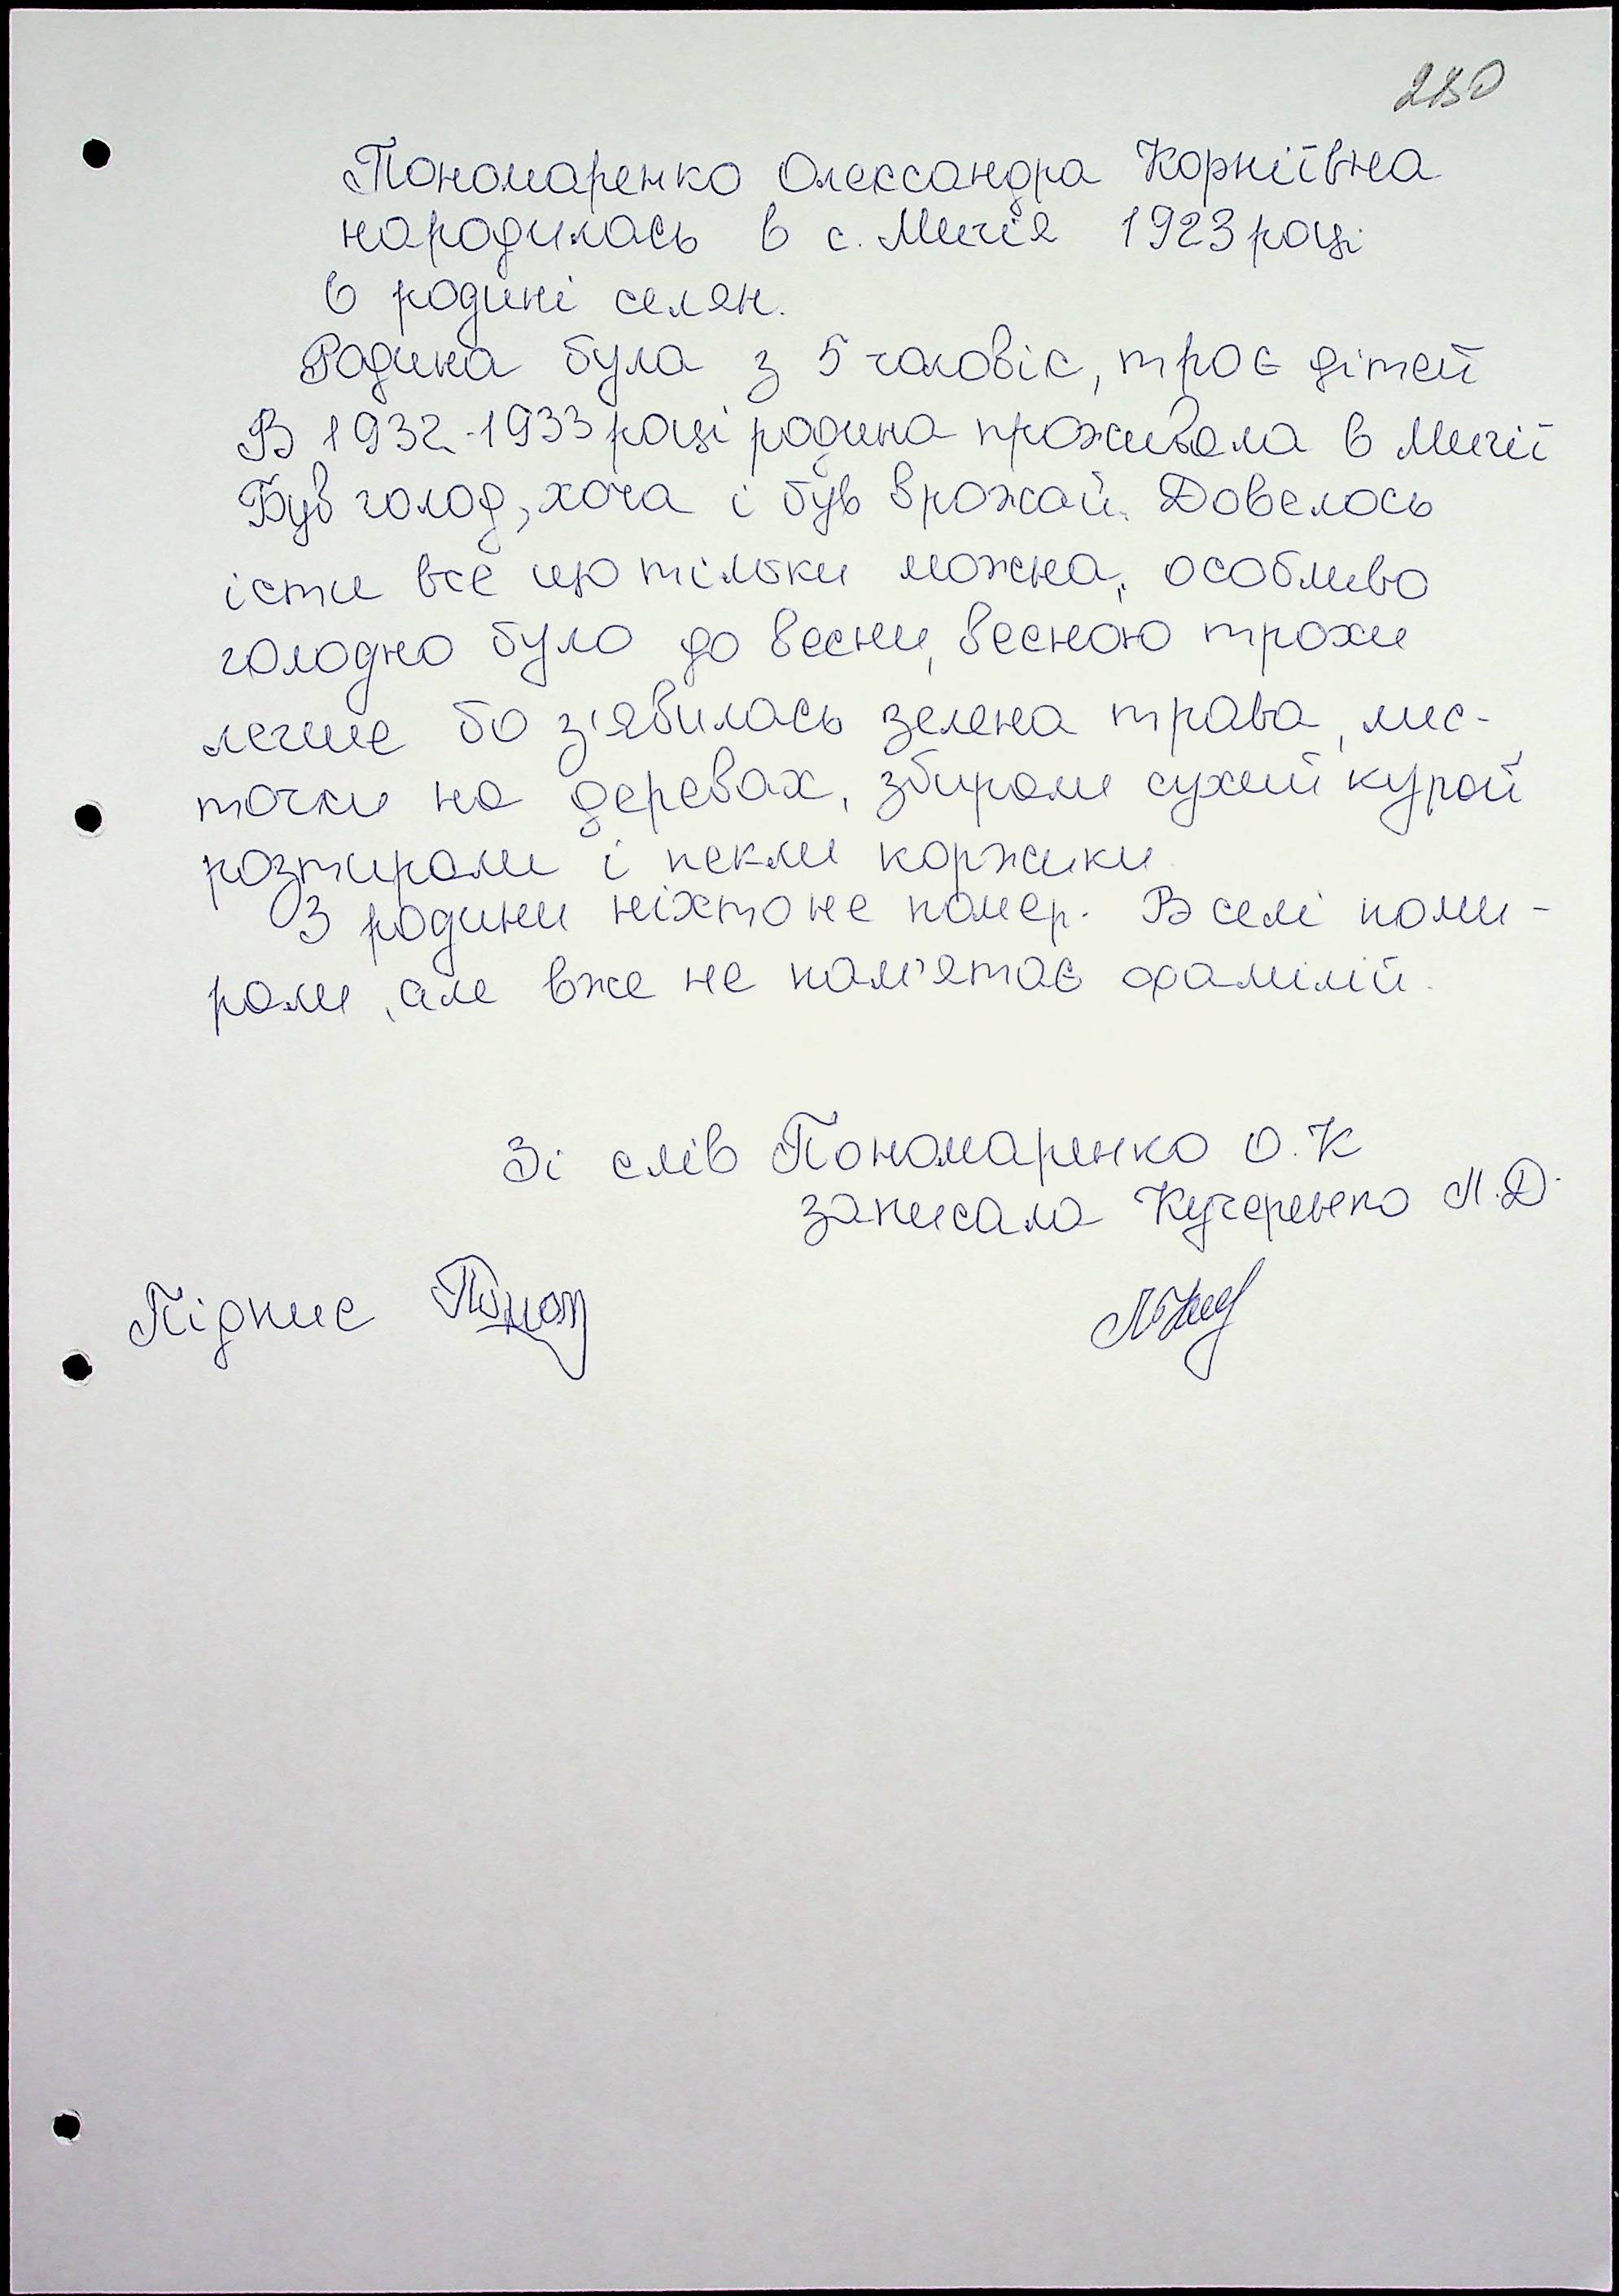 280
Пономаренко Олександра Корніївна
народилась в с. Мигія 1923 році
в родині селян.
Родина була з 5 чоловік, троє дітей
В 1932-1933 році родина проживала в Мигії
Був голод, хоча і був врожай. Довелось
їсти все що тільки можна, особливо
голодно було до весни, весною трохи
легше бо з'явилась зелена трава, лис-
точки на деревах, збирали сухий курай
розтирали і пекли коржики
З родини ніхто не помер. В селі поми-
рали, але вже не пам'ятає фамілій.
Зі слів Пономаренко О.К
записала Кучеренко Л.Д.
Підпис